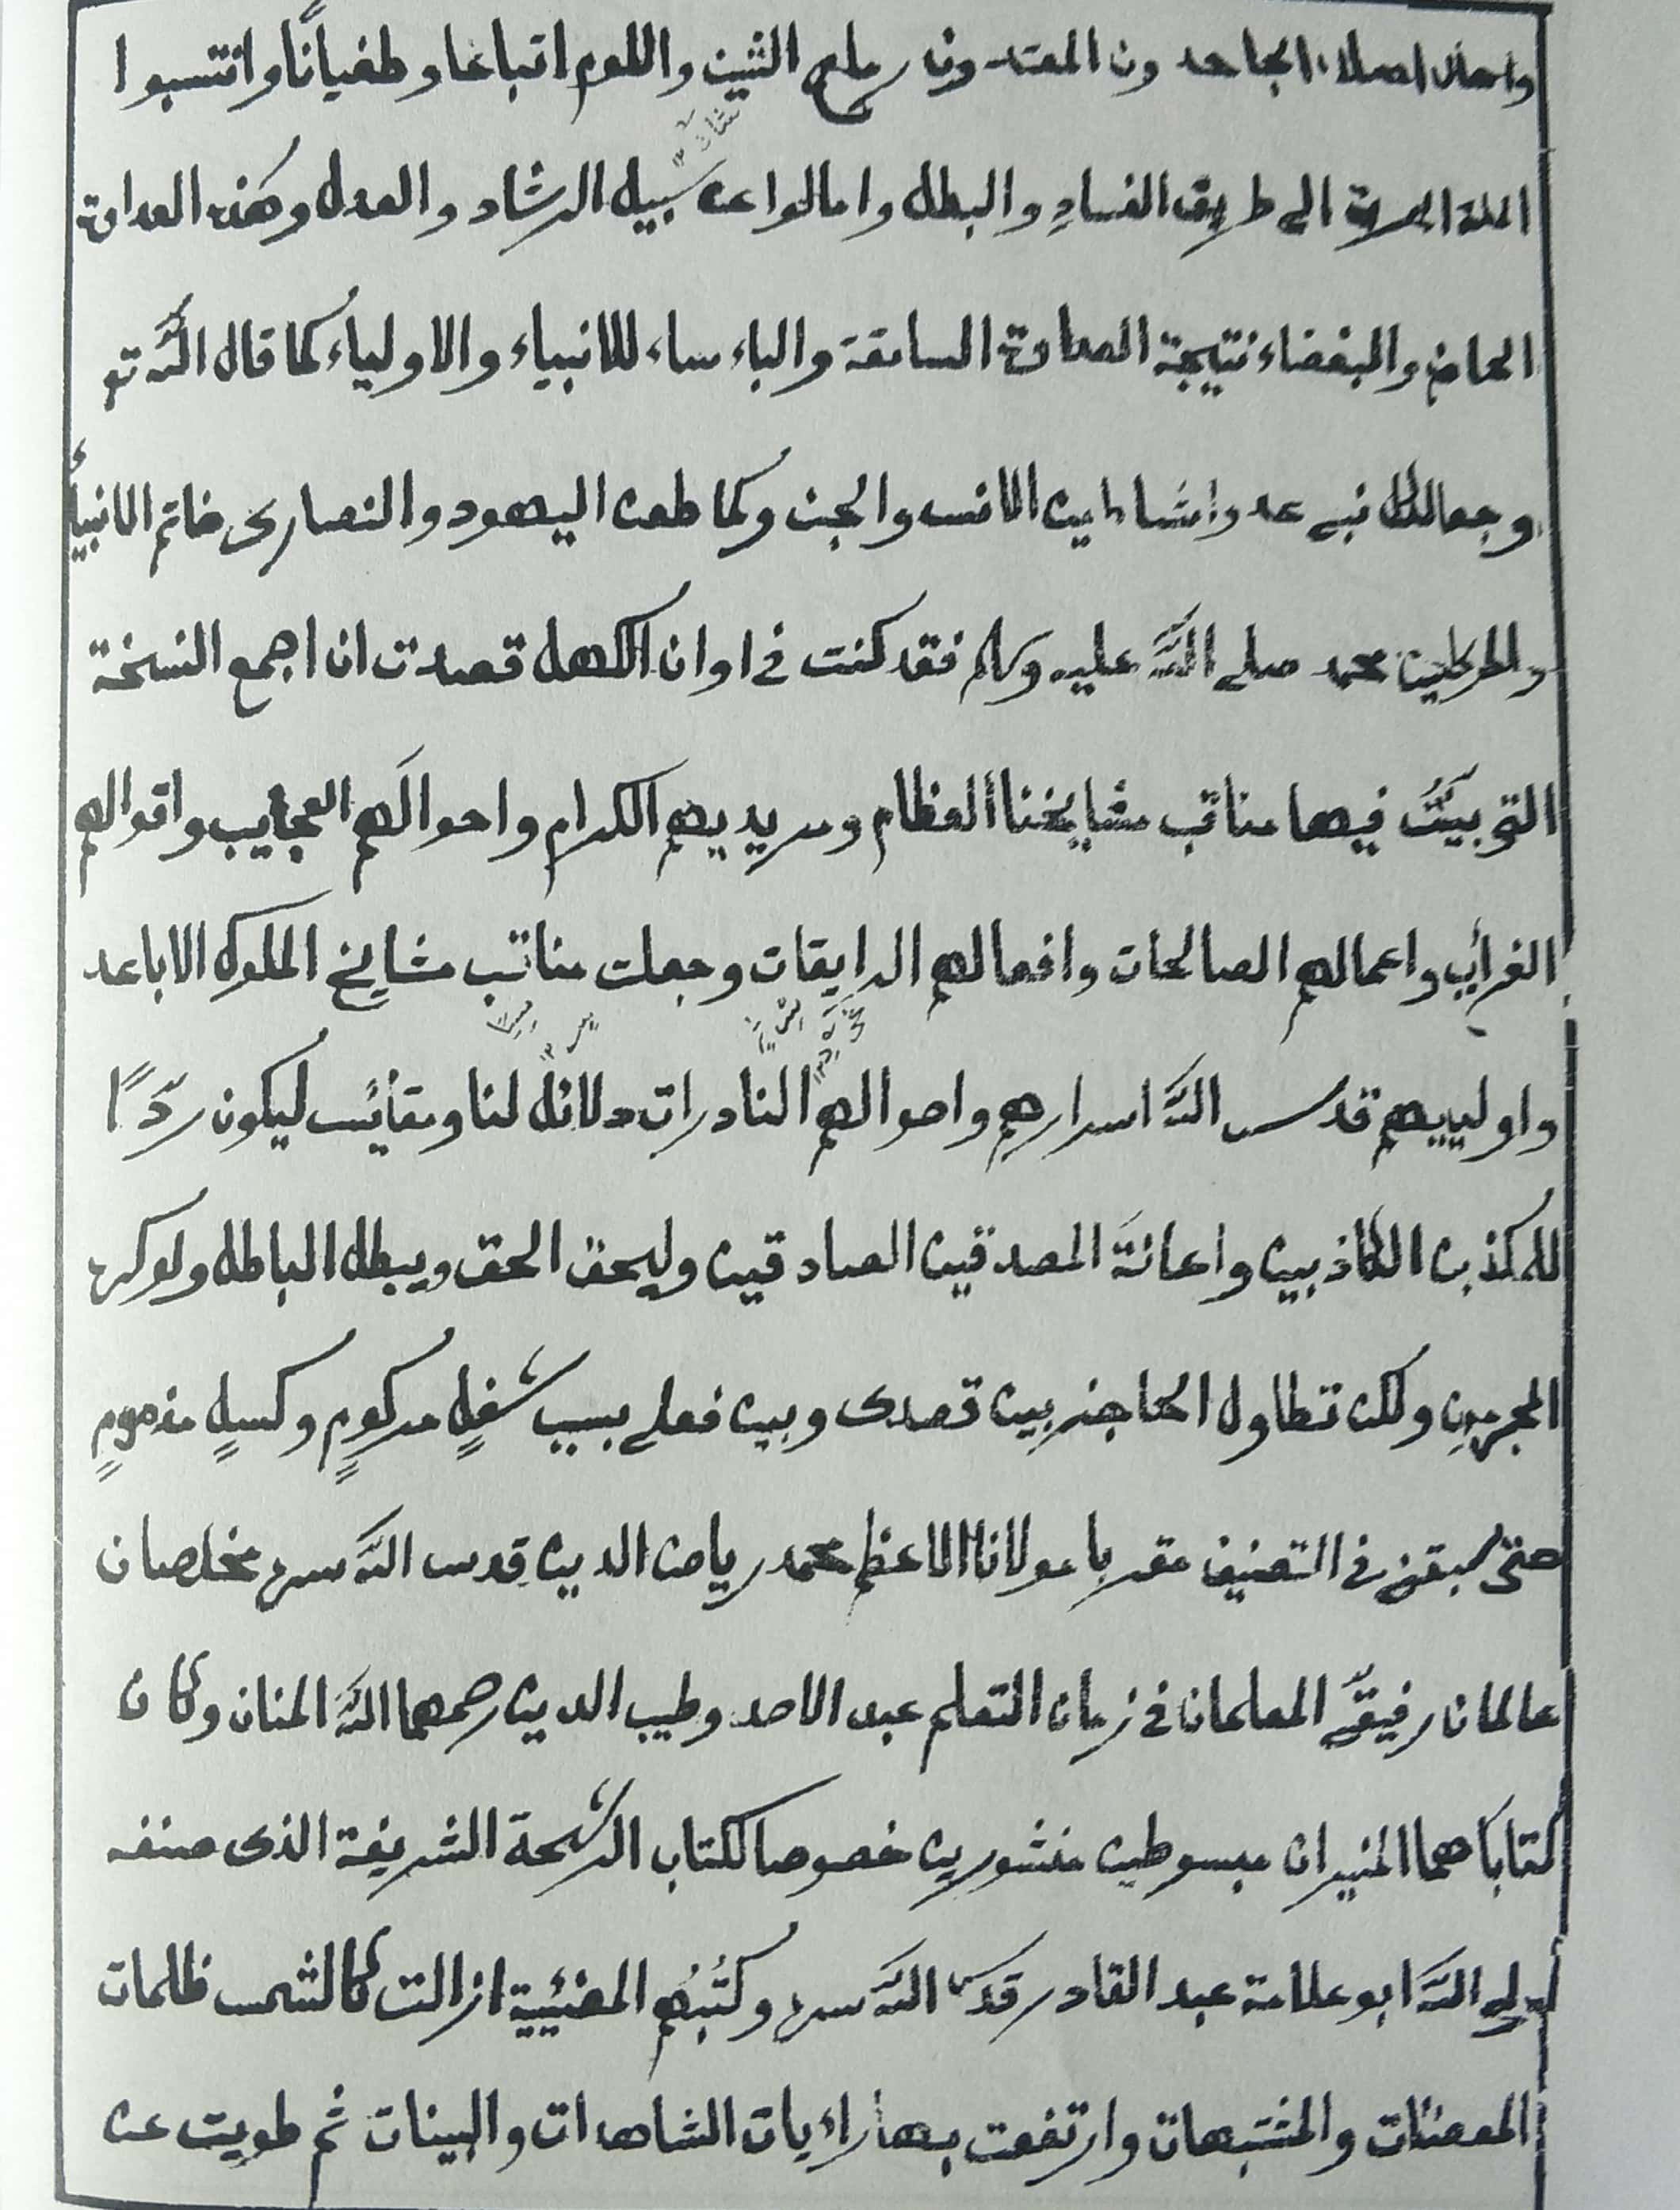 الجاحدون المعتدون عليهم الشين واللوم اتباعا وطغيانا وانتسبوا
الى طريق الفساد والبطل وامالوا عن سبيل الرشاد والعدل وهذه العداوة
والبغضاء نتيجة العداوة السابقة والباءساء للانبياء والاولياء كما قال الله تع
وجعلنا لكل نبي عدوا شياطين الانس والجن وكما طعن اليهود والنصارى خاتم الانبياء
والمرسلين محمد صلى الله عليه وسلم فقد كنت في اوان الكهل قصدت ان اجمع النسخة
التي بينت فيها مناقب مشايخنا العظام ومريديهم الكرام واحوالهم العجايب واقوالهم
الغرأيب واعمالهم الصالحات وافعالهم الرايقات وجعلت مناقب مشايخ الملوك الاباعد
واولييهم قدس الله اسرارهم واحوالهم النادرات دلائل لنا ومقائس ليكون ردّا
للمكذبين الكاذبين واعانة المصدقين الصادقين وليحق الحق ويبطل الباطل ولو كره
المجرمين ولكن تطاول الحاجز بين قصدى وبين فعلي بسبب شغلٍ مركومٍ وكسلٍ مذمومٍ
حتى سبقني في التصنيف مقربا مولانا الاعظم محمد رياض الدين قدس الله سره مخلصان
عالمان رفيقيّ المعلمان في زمان التعلم عبد الاحد وطيب الدين رحمهما الله المنان وكان
كتاباهما المنيران مبسوطين منشورين خصوصا لكتاب الرشحة الشريفة الذى صنفه
ولي الله ابو علامة عبد القادر قدس الله سره وكتبهم المضئيية ازالت كالشمس ظلمات
المعضلات والمشتبهات وارتفعت بها راءيات الشاهدات والبينات ثم طويت عن